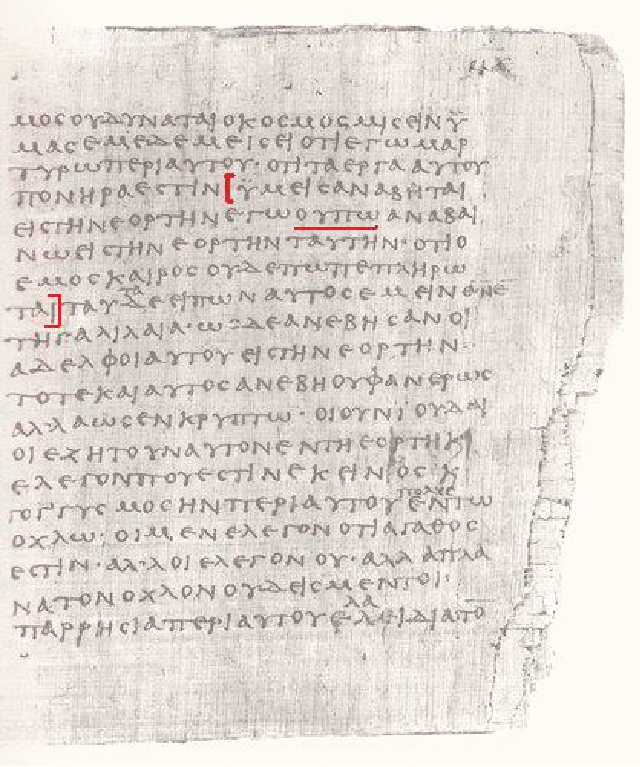 ΜΟϹΟΥΔΥΝΑΤΑΙΟΚΟϹΜΟϹΜΙϹΕΙΝΫ
ΜΑϹΕΜΕΔΕΜΕΙϹΕΙΟΤΙΕΓΩΜΑΡ
ΤΥΡΩΠΕΡΙΑΥΤΟΥ·ΟΤΙΤΑΕΡΓΑΑΥΤΟΥ
ΠΟΝΗΡΑΕϹΤΙΝ[ΫΜΕΙϹΑΝΑΒΗΤΑΙ
ΕΙϹΤΗΝΕΟΡΤΗΝΕΓΩΟΥΠΩΑΝΑΒΑΙ
ΝΩΕΙϹΤΗΝΕΟΡΤΗΝΤΑΥΤΗΝ·ΟΤΙΟ
ΕΜΟϹΚΑΙΡΟϹΟΥΔΕΠΩΠΕΠΛΗΡΩ
ΤΑΙ]ΤΑΥΤΑΔΕΕΙΠΩΝΑΥΤΟϹΕΜΕΙΝΕΝ
ΤΗΓΑΛΙΛΑΙΑ·ΩϹΔΕΑΝΕΒΗϹΑΝΟΙ
ΑΔΕΛΦΟΙΑΥΤΟΥΕΙϹΤΗΝΕΟΡΤΗΝ·
ΤΟΤΕΚΑΙΑΥΤΟϹΑΝΕΒΗΟΥΦΑΝΕΡΩϹ
ΑΛΛΑΩϹΕΝΚΡΥΠΤΩ·ΟΙΟΥΝΪΟΥΔΑΙ
ΟΙΕΖΗΤΟΥΝΑΥΤΟΝΕΝΤΗΕΟΡΤΗΚ
ΕΛΕΓΟΝΠΟΥΕϹΤΙΝΕΚΕΙΝΟϹ·Κ
ΓΟΓΓΥϹΜΟϹΗΝΠΕΡΙΑΥΤΟΥΠΟΛΥϹΕΝΤΩ
ΟΧΛΩ·ΟΙΜΕΝΕΛΕΓΟΝΟΤΙΑΓΑΘΟϹ
ΕϹΤΙΝ·ΑΛΛΟΙΕΛΕΓΟΝΟΥ·ΑΛΛΑΠΛΑ
ΝΑΤΟΝΟΧΛΟΝΟΥΔΕΙϹΜΕΝΤΟΙ·
ΠΑΡΡΗϹΙΑΠΕΡΙΑΥΤΟΥΕΛΑΛΕΙΔΙΑΤΟ